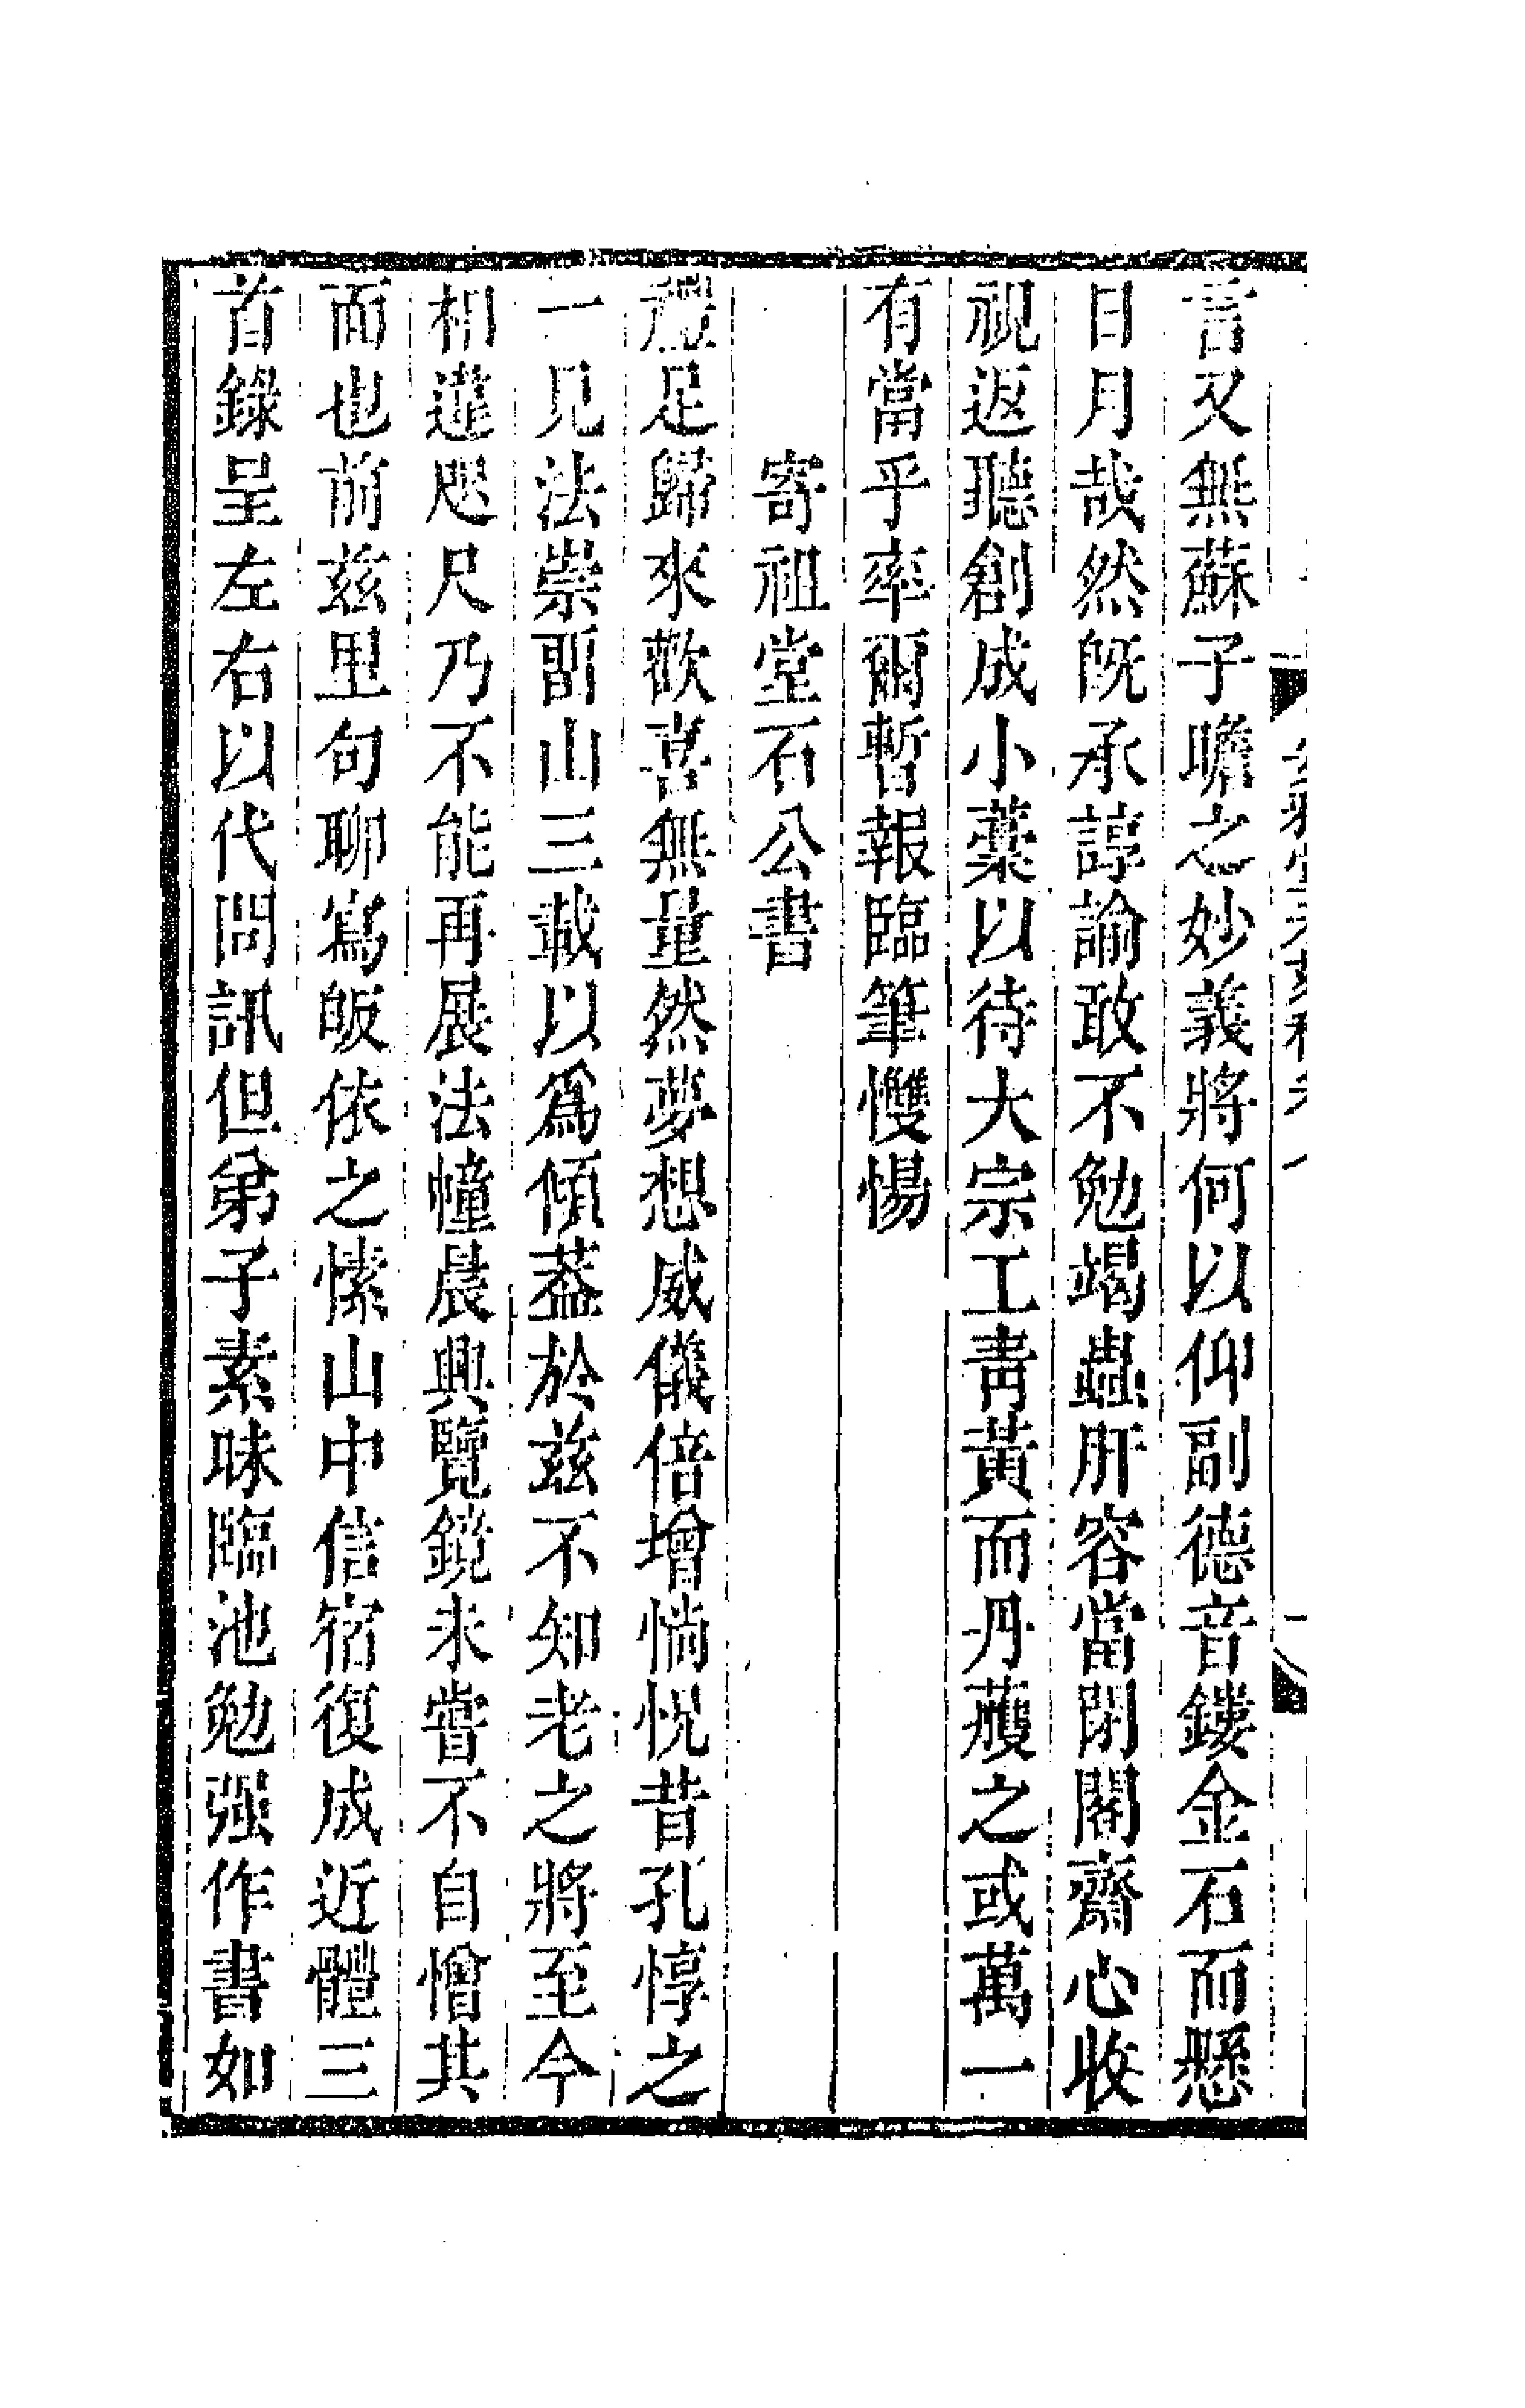 言又無蘇子瞻之妙義將何以仰副德音鏤金石而懸
日月哉然旣承諄諭敢不勉竭蟲肝容當閉閣齋心收
視返聽創成小藁以待大宗工靑黃而丹蘞之或萬一
有當乎率爾暫報臨筆戄惕
寄祖堂石公書
禮足歸來歡喜無量然夢想威儀倍增惝怳昔孔惇之
一見法崇畱山三載以爲傾葢於兹不知老之將至今
相違咫尺乃不能再展法幢晨興覽鏡未嘗不自憎其
面也前兹里句聊寫皈依之愫山中信宿復成近體三
首錄呈左右以代問訊但弟子素昧臨池勉强作書如